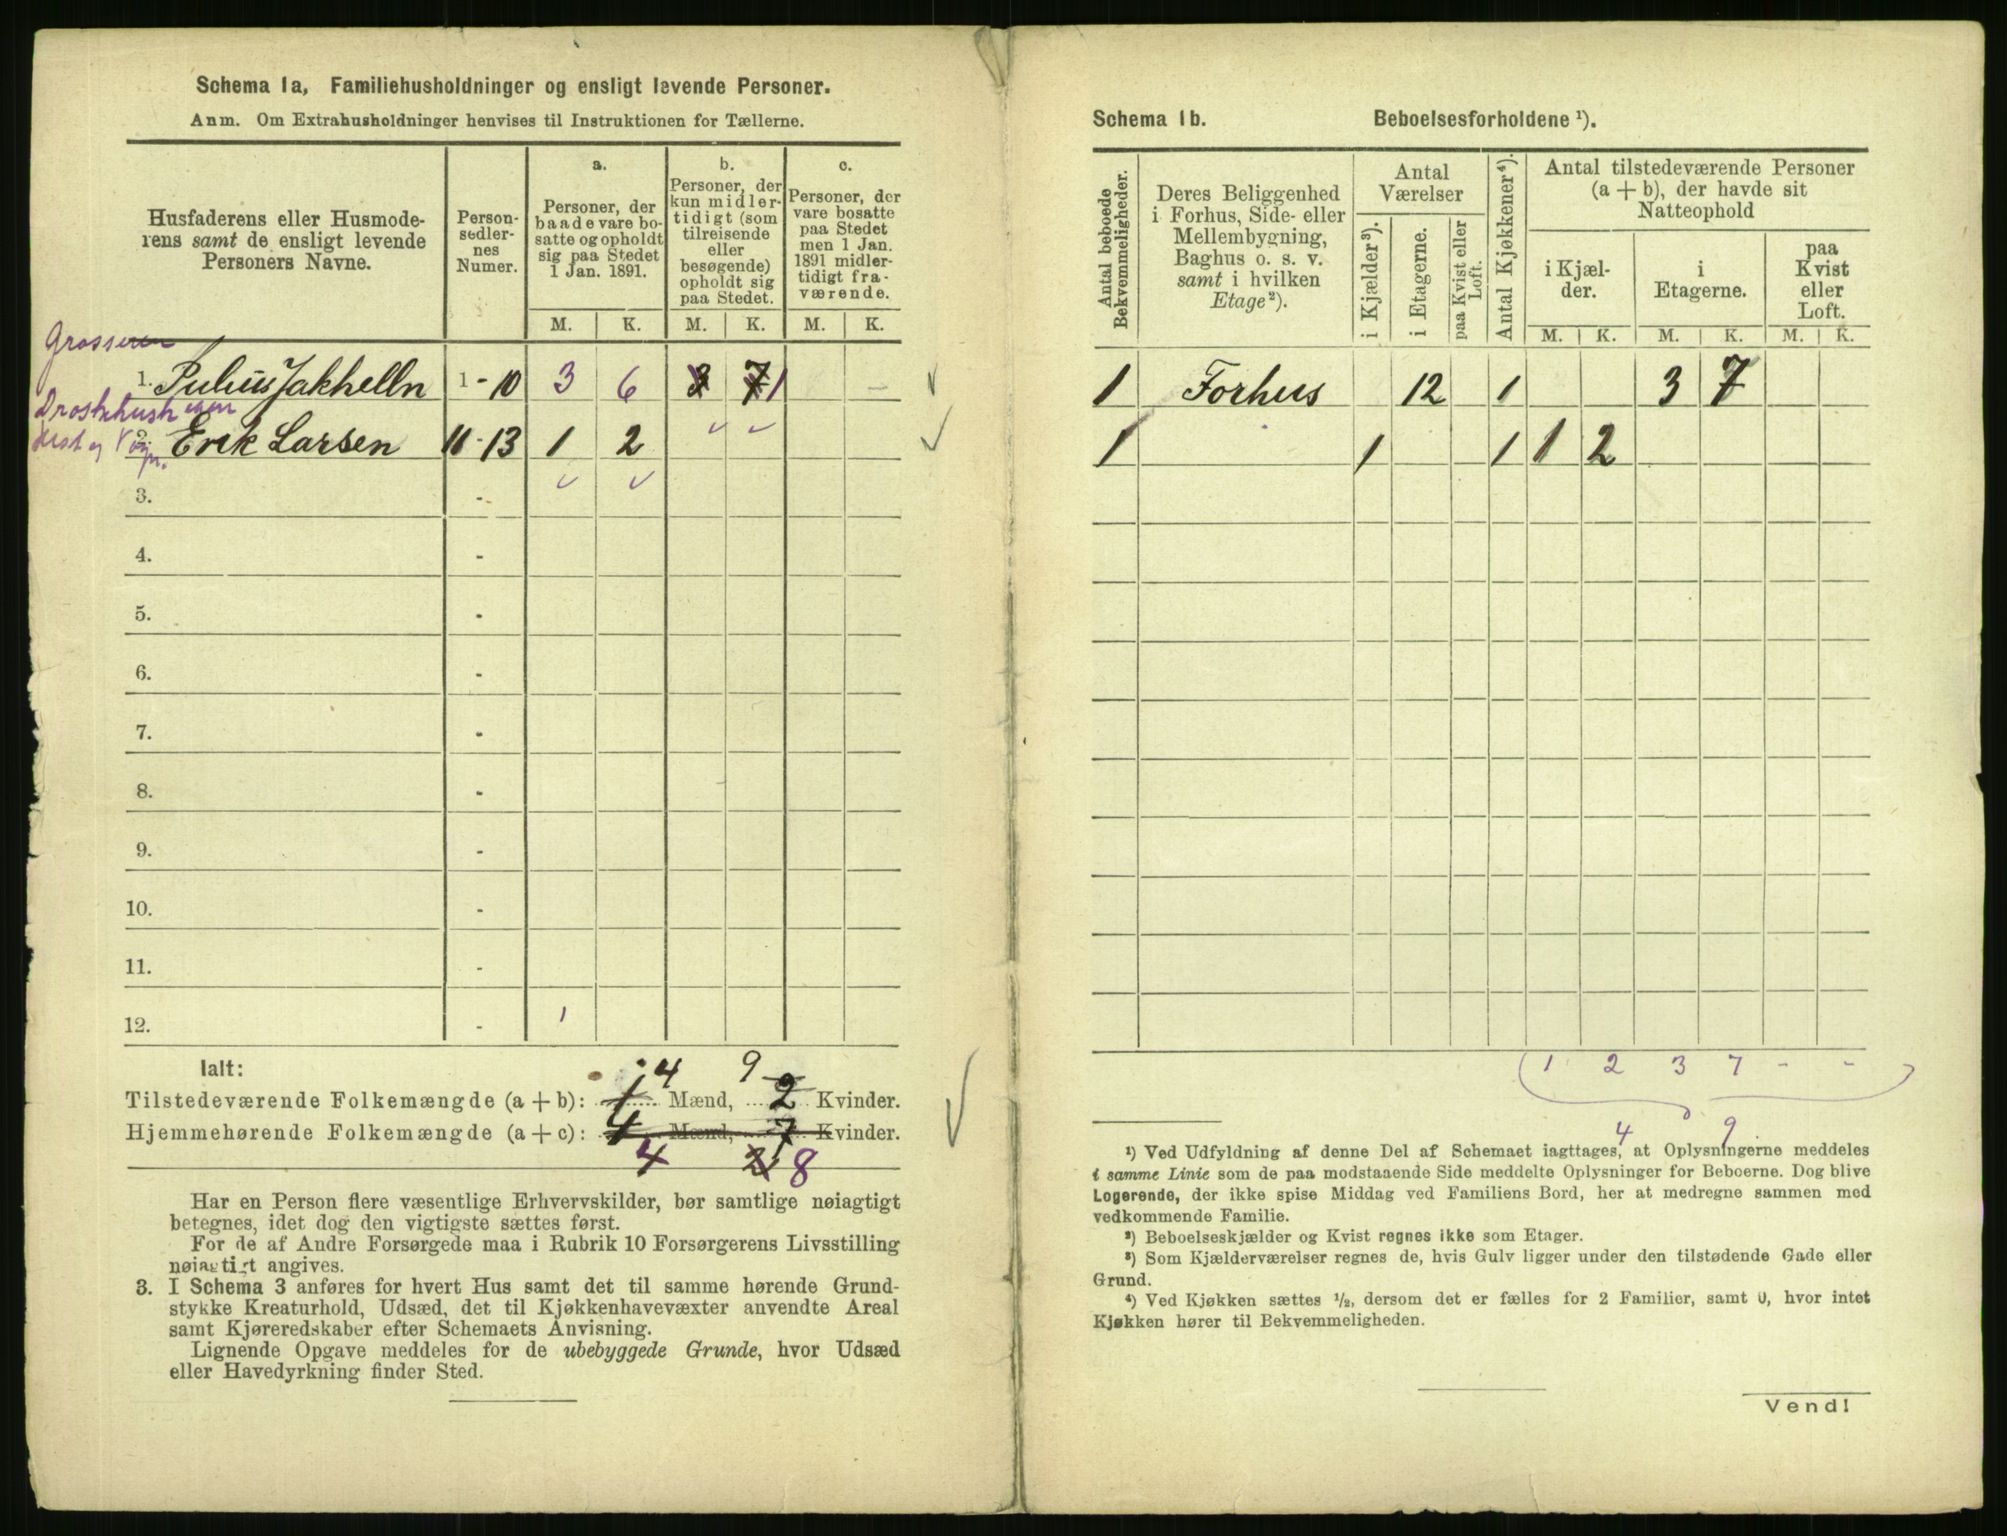 Schema 1a, Familiehusholdninger og ensligt levende Personer.
Anm. Om Extrahusholdninger henvises til Instruktionen for Tællerne.
Husfaderens eller Husmode-
rens samt de ensligt levende
Personers Navne.
Person-
sedler-
nes
Numer.
a.
Personer, der
baade vare bo-
satte og opholdt
sig paa Stedet
1 Jan. 1891.
b.
Personer, der
kun midler-
tidigt (som
tilreisende
eller
besøgende)
opholdt sig
paa Stedet.
c.
Personer, der
vare bosatte
paa Stedet
men 1 Jan.
1891 midler-
tidigt fra-
værende.
M. K. M. K. M. K.
Grosserer
1. Julius Jakhelln 1 - 10 3 6 3 7 1 -
2. Erik Larsen 11 - 13 1 2
3. -
4. -
5. -
6. -
7. -
8. -
9. -
10. -
11. -
12. - 1
Ialt:
4 9
Tilstedeværende Folkemængde (a + b): 1 Mænd, 2 Kvinder.
Hjemmehørende Folkemængde (a + c): 4 Mænd, 7 Kvinder.
4 2 8
Har en Person flere væsentlige Erhvervskilder, bør samtlige nøiagtigt
betegnes, idet dog den vigtigste sættes først.
For de af Andre Forsørgede maa i Rubrik 10 Forsørgerens Livsstilling
nøiagtigt angives.
3. I Schema 3 anføres for hvert Hus samt det til samme hørende Grund-
stykke Kreaturhold, Udsæd, det til Kjøkkenhavevæxter anvendte Areal
samt Kjøreredskaber efter Schemaets Anvisning.
Lignende Opgave meddeles for de ubebyggede Grunde, hvor Udsæd
eller Havedyrkning finder Sted.
Schema 1b. Beboelsesforholdene ¹).
Antal beboede
Bekvemmeligheder.
Deres Beliggenhed
i Forhus, Side- eller
Mellembygning,
Baghus o. s. v.
samt i hvilken
Etage ²).
Antal
Værelser
i Kjælder ³).
i Etagerne.
paa Kvist eller
Loft.
Antal Kjøkkener ⁴).
Antal tilstedeværende Personer
(a + b), der havde sit
Natteophold
i Kjæl-
der.
i
Etagerne.
paa
Kvist
eller
Loft.
M. K. M. K. M. K.
1 Forhus 12 1 3 7
1 " 1 1 1 2
1 2 3 7 - -
4 9
¹) Ved Udfyldning af denne Del af Schemaet iagttages, at Oplysningerne meddeles
i samme Linie som de paa modstaaende Side meddelte Oplysninger for Beboerne. Dog blive
Logerende, der ikke spise Middag ved Familiens Bord, her at medregne sammen med
vedkommende Familie.
²) Beboelseskjælder og Kvist regnes ikke som Etager.
³) Som Kjælderværelser regnes de, hvis Gulv ligger under den tilstødende Gade eller
Grund.
⁴) Ved Kjøkken sættes ½, dersom det er fælles for 2 Familier, samt 0, hvor intet
Kjøkken hører til Bekvemmeligheden.
Vend!